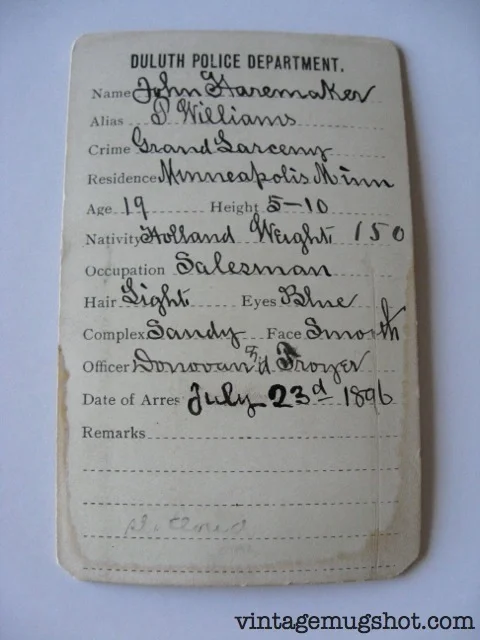 DULUTH POLICE DEPARTMENT.
Name John Haremaker
Alias P Williams
Crime Grand Larceny
Residence Minneapolis Minn
Age 19 Height 5-10
Nativity Holland Weight 150
Occupation Salesman
Hair Light Eyes Blue
Complex. Sandy Face Smooth
Officer Donovan & Troyer
Date of Arres July 23d 1896
Remarks
vintagemugshot.com